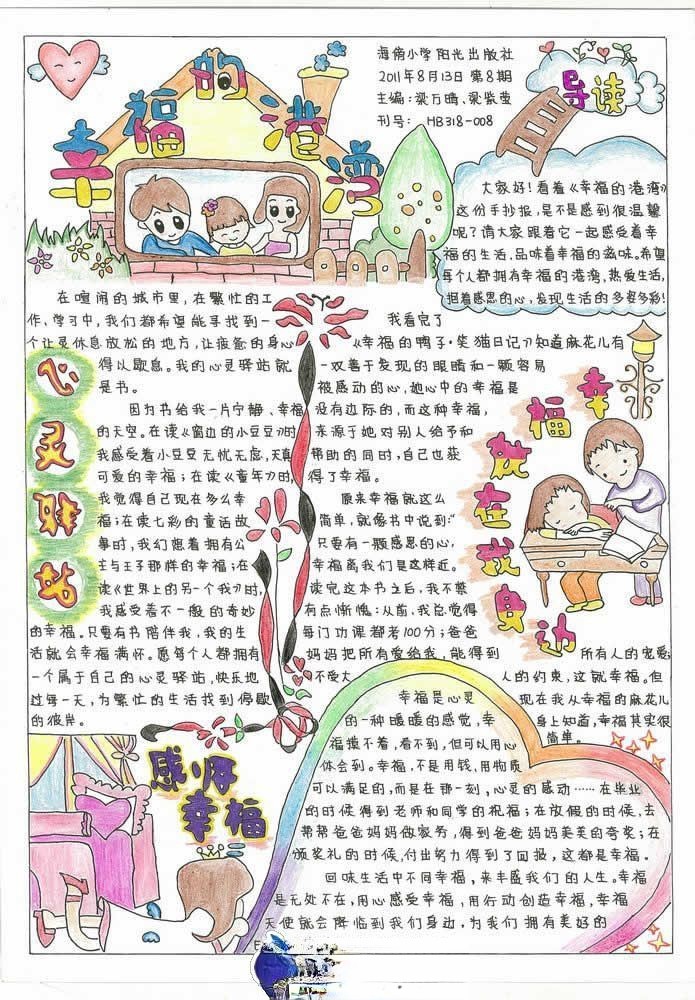 幸福的港湾
海傍小学阳光出版社
2011年8月13日 第8期
主编:梁方晴、梁紫莹
刊号: HB318-008
导读
大家好!看着《幸福的港湾》
这份手抄报,是不是感到很温馨
呢?请大家跟着它一起感受着幸
福的生活,品味着幸福的滋味。希望
每个人都拥有幸福的港湾,热爱生活,
担着感恩的心,发现生活的多姿多彩!
心灵驿站
在喧闹的城市里,在繁忙的工
作、学习中,我们都希望能寻找到一
个让灵休息放松的地方,让疲惫的身心
得以歇息。我的心灵驿站就
是书。
因为书给我一片宁静、幸福
的天空。在读《窗边的小豆豆》时,
我感受着小豆豆无忧无虑,天真
可爱的幸福;在读《童年》时,
我觉得自己现在多么幸
福;在读七彩的童话故
事时,我幻想着拥有公
主与王子那样的幸福;在
读《世界上的另一个我》时,
我感受着不一般的奇妙
的幸福。只要有书陪伴我,我的生
活就会幸福满怀。愿每个人都拥有
一个属于自己的心灵驿站,快乐地
过每一天,为繁忙的生活找到停歇
的彼岸。
幸福就在我身边
我看完了
《幸福的鸭子·笑猫日记》知道麻花儿有
一双善于发现的眼睛和一颗容易
被感动的心,她心中的幸福是
没有边际的,而这种幸福,
来源于她对别人给予和
帮助的同时,自己也获
得了幸福。
原来幸福就这么
简单,就像书中说到:“
只要有一颗感恩的心,
幸福离我们是这样近。
读完这本书之后,我不禁
有点惭愧:从前,我总觉得
每门功课都考100分;爸爸
妈妈把所有爱给我,能得到 所有人的宠爱;
不受大 人的约束,这就幸福。但
现在我从幸福的麻花儿
身上知道,幸福其实很
简单。
感悟幸福
幸福是心灵
的一种暖暖的感觉,幸
福摸不着,看不到,但可以用心
体会到。幸福,不是用钱,用物质
可以满足的,而是在那一刻,心灵的感动……在毕业
的时候得到老师和同学的祝福;在放假的时候,去
帮帮爸爸妈妈做家务,得到爸爸妈妈美美的夸奖;在
颁奖礼的时候,付出努力得到了回报,这都是幸福。
回味生活中不同幸福,来丰盛我们的人生。幸福
是无处不在,用心感受幸福,用行动创造幸福,幸福
天使就会降临到我们身边,为我们拥有美好的